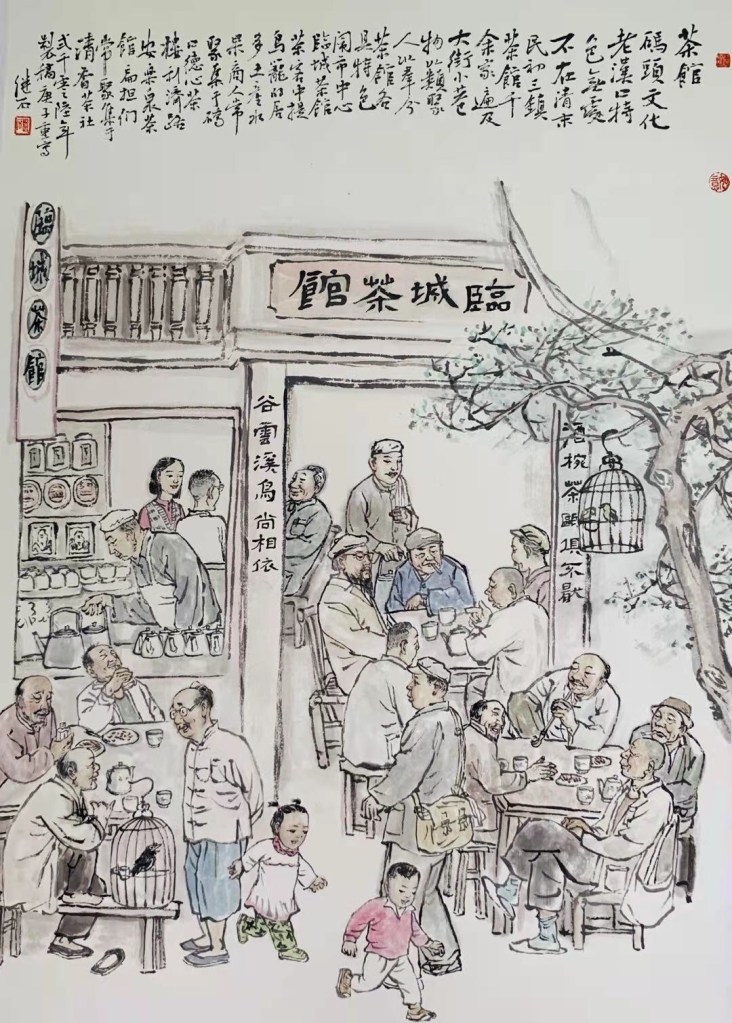 茶館
碼頭文化
老漢口特
色無處
不在清末
民初三鎮
茶館千
余家遍及
大街小巷
物以類聚
人以羣分
茶館各
具特色
鬧市中心
臨城茶館
茶客中提
鳥籠的居
多土產水
果商人常
聚集于碼
口德心茶
樓利濟路
安樂泉茶
館扁担們
常聚集于
清香茶社
弍千零陸年
製稿庚子重寫
继石
臨城茶館
臨城茶館
酒椀茶甌俱不厭
谷雲溪鳥尚相依